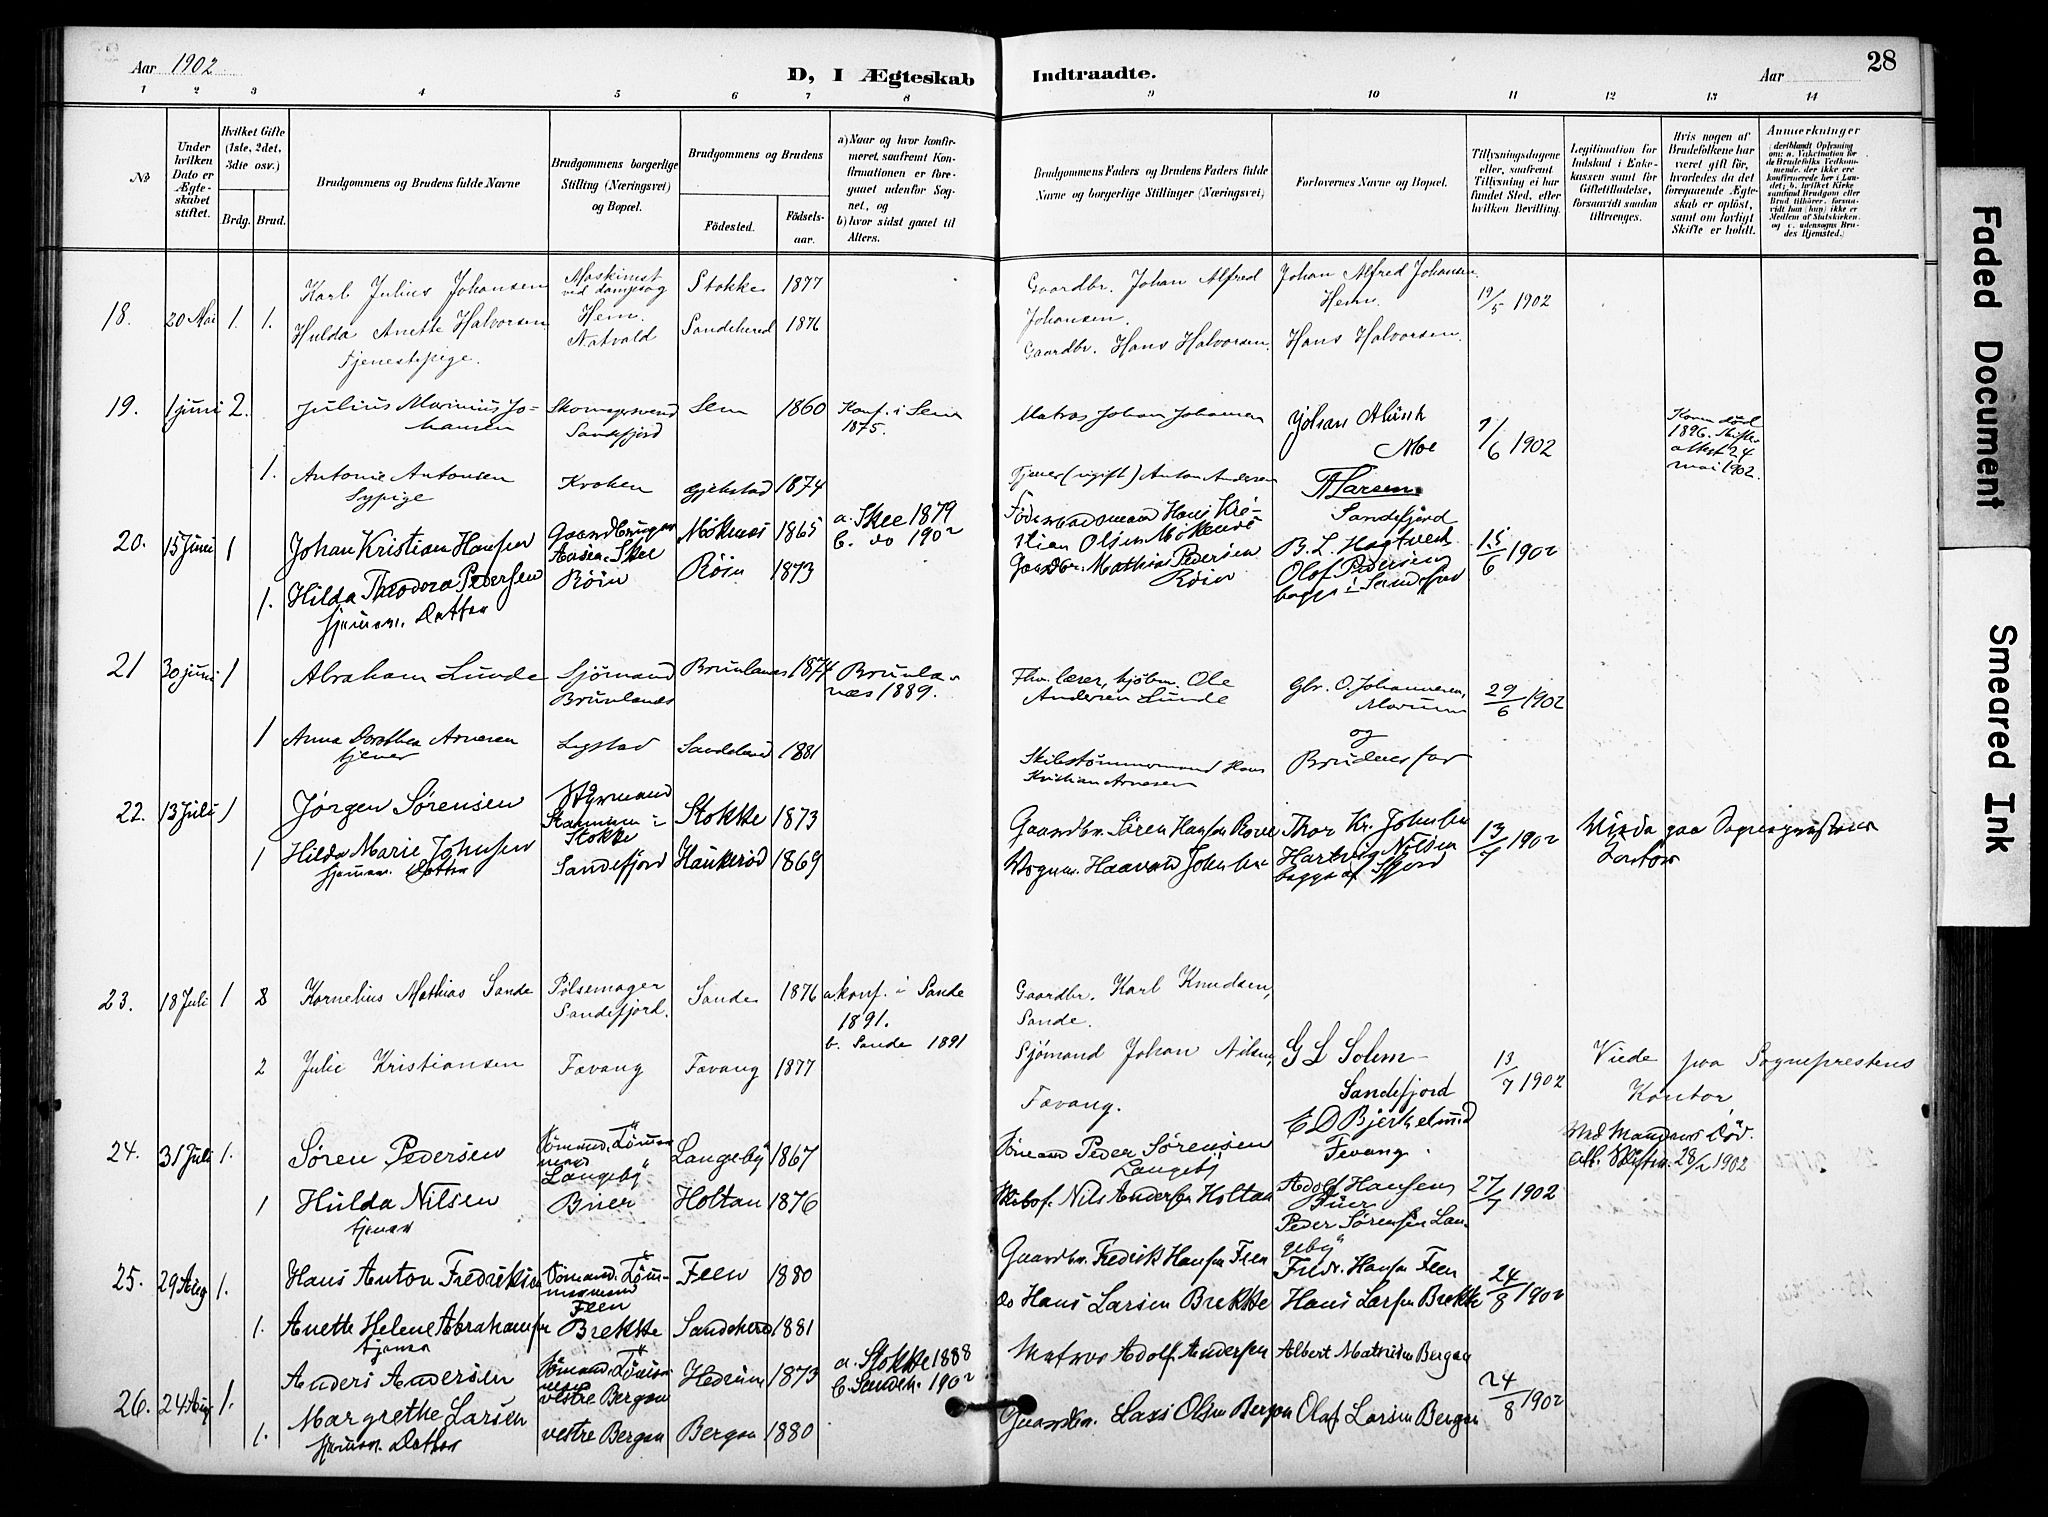 Aar 1902
D, I Ægteskab Indtraadte.
Aar
28
1 2 3 4 5 6 7 8 9 10 11 12 13 14
No
Under hvilken Dato er Ægteskabet stiftet.
Hvilket Gifte (1ste, 2det, 3die osv.)
Brdg. Brud.
Brudgommens og Brudens fulde Navne
Brudgommens borgerlige Stilling (Næringsvei) og Bopæl.
Brudgommens og Brudens
Födested. Födsels-aar.
a) Naar og hvor konfirmeret, saafremt Konfirmationen er foregaaet udenfor Sognet, og
b) hvor sidst gaaet til Alters.
Brudgommens Faders og Brudens Faders fulde Navne og borgerlige Stillinger (Næringsvei)
Forlovernes Navne og Bopæl.
Tillysningsdagene eller, saafremt Tillysning ei har fundet Sted, efter hvilken Bevilling.
Legitimation for Indskud i Enkekassen samt for Giftetilladelse, forsaavidt saadan tiltrænges.
Hvis nogen af Brudefolkene har været gift för, hvorledes da det foregaaende Ægteskab er oplöst, samt om lovligt Skifte er holdt.
Anmerkninger
18. 20 Mai 1. 1.
Karl Julius Johansen
Maskinist ved dampsag Hem.
Stokke 1877
Gaardbr. Johan Alfred Johansen.
Johan Alfred Johansen Hem.
19/5 1902
Hulda Anette Halvorsen
Tjenestepige.
Natvald
Sandeherred 1876
Gaardbr. Hans Halvorsen.
Hans Halvorsen.
19. 1 juni 2.
Julius Marinius Johansen
Skomagersvend Sandefjord
Sem 1860
Konf. i Sem 1875.
Matros Johan Johansen
Johan Munk Moe
1/6 1902
Konen död 1896. Skifteattest 24 mai 1902.
1.
Antonie Antonsen
Sypige
Kroken
1874
Tjener (ugift) Anton Andersen
A Larsen
Sandefjord
20. 15 Juni 1
Johan Kristian Hansen
Gaardbruger Aasen. Skee
Møkenæs 1865
a. Skee 1879
b. do 1902
Föderaadsmand Hans Kristian Olsen Møkenæs
B. L. Hagtvedt
15/6 1902
1.
Hilda Theodora Pedersen
hjemmev. Datter
Röin
Röin 1873
Gaardbr. Mathias Pedersen Röin
Olaf Pedersen
begge i Sandefjord
21 30 juni 1
Abraham Lunde
Sjömand Brunlanæs
Brunlanæs 1874
Brunlanæs 1889.
Fhv. lærer, kjøbm. Ole Andersen Lunde
Gbr. O. Johannesen,
29/6 1902
og
1
Anna Dorothea Arnesen
tjener
1881
Skibstømmermand Hans Kristian Arnesen
Brudens far
22. 13 Juli 1
Jørgen Sørensen
Styrmand
Stokke
Stokke 1873
Gaardbr. Søren Hansen
Thor Kr. Johnsen
13/7 1902
Viede paa Sogneprestens Kontor
1
Hilda Marie Johnsen
hjemmev. Datter
Sandefjord
Haukerød 1869
Vognm. Haavard Johnsen
Hartvig Nilsen
begge af Sfjord
23. 18 Juli 1 8
Kornelius Mathias Sande
Pölsemager Sandefjord.
Sande 1876
a. konf. i Sande 1891.
b. Sande 1891
Gaardbr. Karl Knudsen, Sande.
2
Julie Kristiansen
Favang
Favang 1877
Sjömand Johan Nilsen, Favang.
G L Solum
Sandefjord
E D Bjerkelund
Fevang.
13/7 1902
Viede paa Sogneprestens Kontor
24. 31 Juli 1.
Søren Pedersen
Sömand. Tömmermand Langeby
Langeby 1867
Sömand Peder Sørensen Langeby
28/ 1902
1
Hulda Nilsen
tjener
Buer
Holtan 1876
Nils Andersen Holtan
Adolf Hansen
Buer
Peder Sørensen Langeby
27/7 1902
25. 29 Aug 1.
Hans Anton Fredriksen
Sömand. Tömmermand Feen
Feen 1880
Gaardbr. Fredrik Hansen Feen
Fredr. Hansen Feen
24/8 1902
1.
Anette Helene Abrahamsen
tjener
Brekke
Sandeherred 1881
do Hans Larsen Brekke
Hans Larsen Brekke
26. 24 Aug 1.
Anders Andersen
Sömand. Tömmermand vestre Bergan
Hedrum 1873
a. Stokke 1888
b. Sandeh. 1902
Matros Adolf Andersen
Albert Mathisen Bergan
24/8 1902
1.
Margrethe Larsen
hjemmev. Datter
vestre Bergan
Bergan 1880
Gaardbr. Lars Olsen Bergan
Olaf Larsen Bergan
Faded Document
Smeared Ink